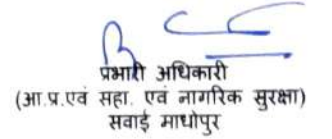 प्रभारी अधिकारी
(आ.प्र.एवं सहा. एवं नागरिक सुरक्षा)
सवाई माधोपुर